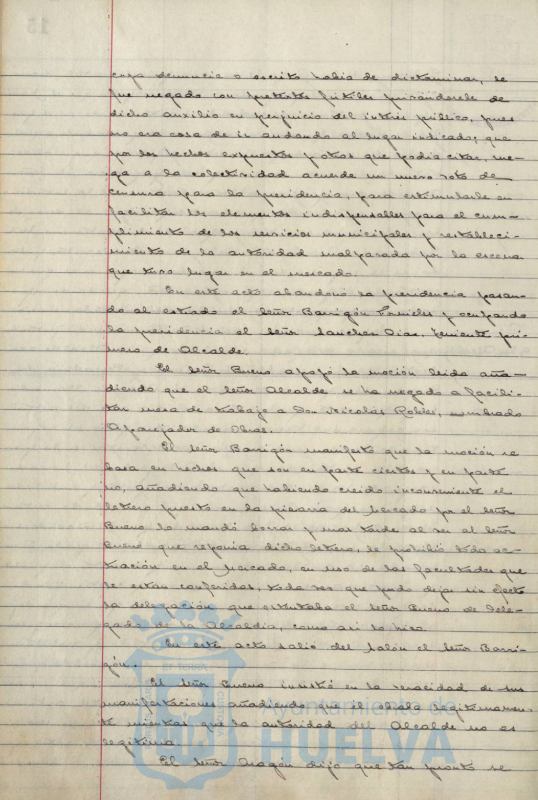 cuya denuncia o escrito había de dictaminar, se
fue negado con pretextos fútiles privándosele de
dicho auxilio en perjuicio del interés público, pues
no era cosa de ir andando al lugar indicado; que
por los hechos expuestos y otros que podía citar, rue-
ga a la colectividad acuerde un nuevo voto de
censura para la presidencia, para estimularle en
facilitar los elementos indispensables para el cum-
plimiento de los servicios municipales y restableci-
miento de la autoridad malparada por la escena
que tuvo lugar en el mercado.
En este acto abandonó la presidencia pasan-
do al estrado el Señor Barrigón Fornieles y ocupando
la presidencia el Señor Sanchez Dias, Teniente pri-
mero de Alcalde.
El Señor Bueno apoyó la moción leida aña-
diendo que el Señor Alcalde se ha negado a facili-
tar mesa de trabajo a Don Nicolás Robles, nombrado
Aparejador de Obras.
El Señor Barrigón manifestó que la moción se
basa en hechos que son en parte ciertos y en parte
no, añadiendo que habiendo creido inconveniente el
letrero puesto en la pizarra del Mercado por el Señor
Bueno lo mandó borrar y mas tarde al ver al Señor
Bueno que reponia dicho letrero, le prohibió toda ac-
tuación en el Mercado, en uso de las facultades que
le estan conferidas, toda vez que pudo dejar sin efecto
la delegación que ostentaba el Señor Bueno de Dele-
gado de la Alcaldía, como asi lo hizo.
En este acto salió del salón el Señor Barri-
gón.
El Señor Bueno insistió en la veracidad de sus
manifestaciones añadiendo que él obraba legitimamen-
te mientras que la autoridad del Alcalde no es
legitima.
El Señor Aragón dijo que tan pronto se
Ayuntamiento de
HUELVA